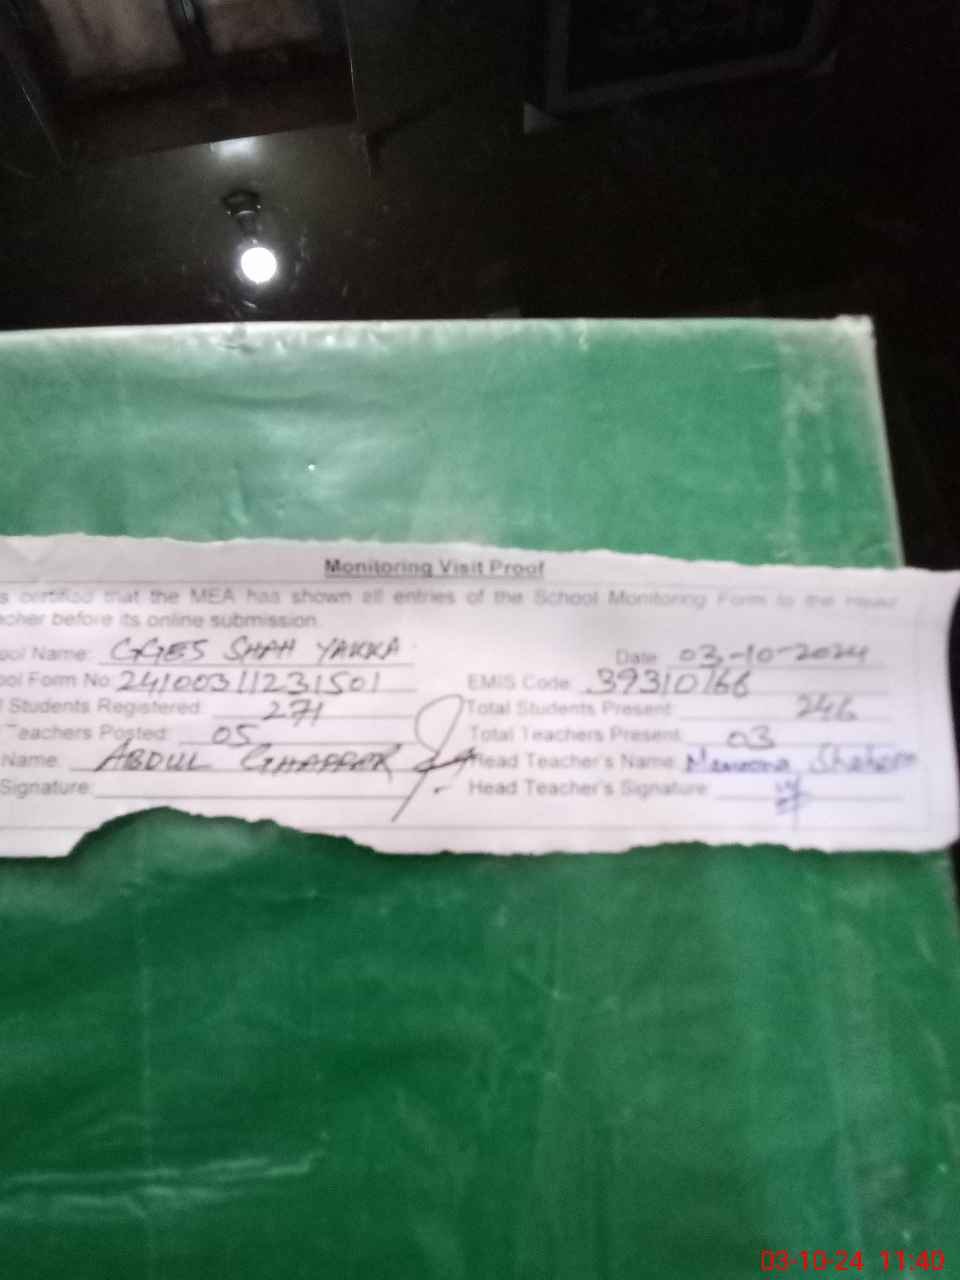 Monitoring Visit Proof
s certified that the MEA has shown all entries of the School Monitoring Form to the Head
acher before its online submission.
ool Name: GGES SHAH YAKKA Date 03-10-2024
ool Form No: 24100311231501 EMIS Code: 39310166
Students Registered: 271 Total Students Present: 246
Teachers Posted: 05 Total Teachers Present: 03
Name: ABDUL GHAFFAR Head Teacher's Name: Shaheen
Signature: Head Teacher's Signature
03-10-24 11:40